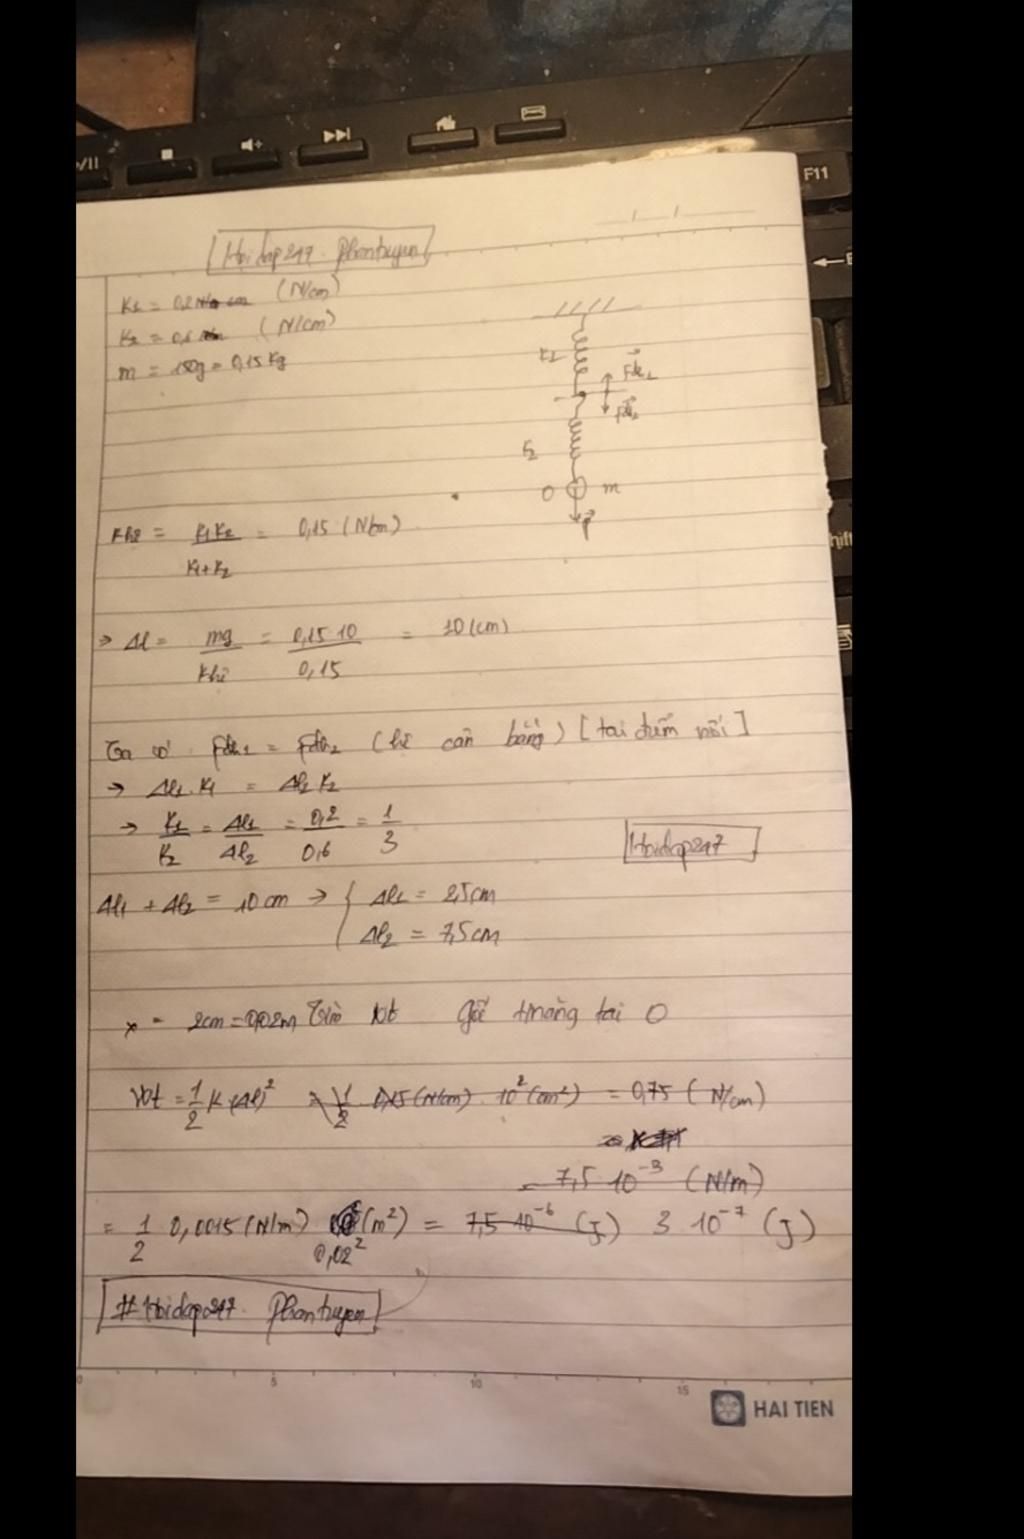 F11
Hoidap247. Phantuyen
K1 = 0,2 (N/cm)
K2 = 0,6 (N/cm)
m = 150g = 0,15 Kg
K1
Fđh1
Fđh2
K2
O m
P
Khệ = K1K2 / K1+K2 = 0,15 (N/cm)
→ Δl = mg / Khệ = 0,15 10 / 0,15 = 10 (cm)
Ta có Fđh1 = Fđh2 (hệ cân bằng) [tại điểm nối]
→ Δl1.K1 = Δl2 K2
→ K1/K2 = Δl1/Δl2 = 0,2/0,6 = 1/3
Hoidap247
Δl1 + Δl2 = 10 cm → { Δl1 = 2,5cm
Δl2 = 7,5cm
x = 2cm = 0,02m Gốc tại O
Wt = 1/2 K.(Δl)² = 1/2 0,15 (N/cm) 10² (cm²) = 0,75 (N/cm)
= 7,5 10⁻³ (N/m)
= 1/2 0,0015 (N/m) (m²) = 7,5 10⁻⁶ (J) 3 10⁻⁷ (J)
0,02²
#Hoidap247. Phantuyen
0 5 10 15
HAI TIEN